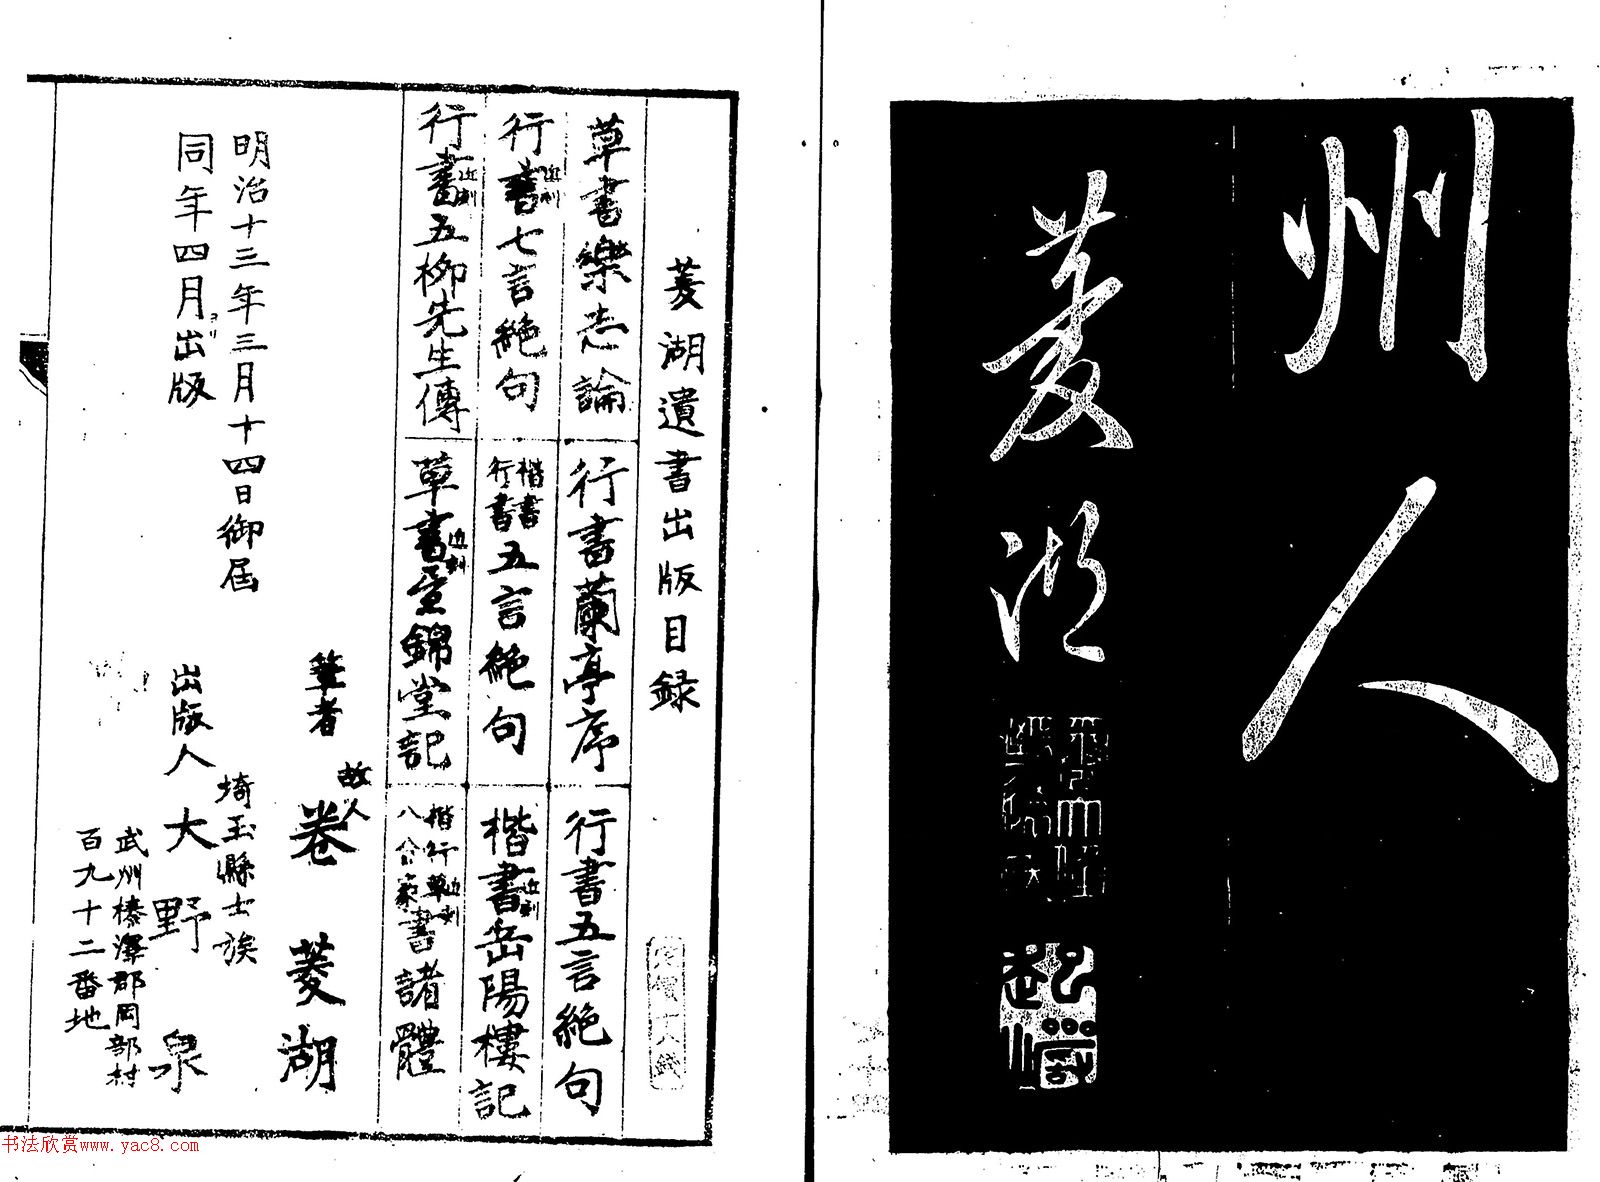 州人
菱湖
菱湖遺書出版目録
草書樂志論
行書蘭亭序
行書五言絶句
行書七言絶句
近刻
楷書行書五言絶句
楷書岳陽樓記
近刻
行書五柳先生傳
近刻
草書昼錦堂記
近刻
楷行草八分篆書諸體
近刻
筆者
故人
卷菱湖
明治十三年三月十四日御届
同年四月出版
ヨリ
埼玉縣士族
出版人大野泉
武州榛澤郡岡部村
百九十二番地
书法欣赏www.yac8.com